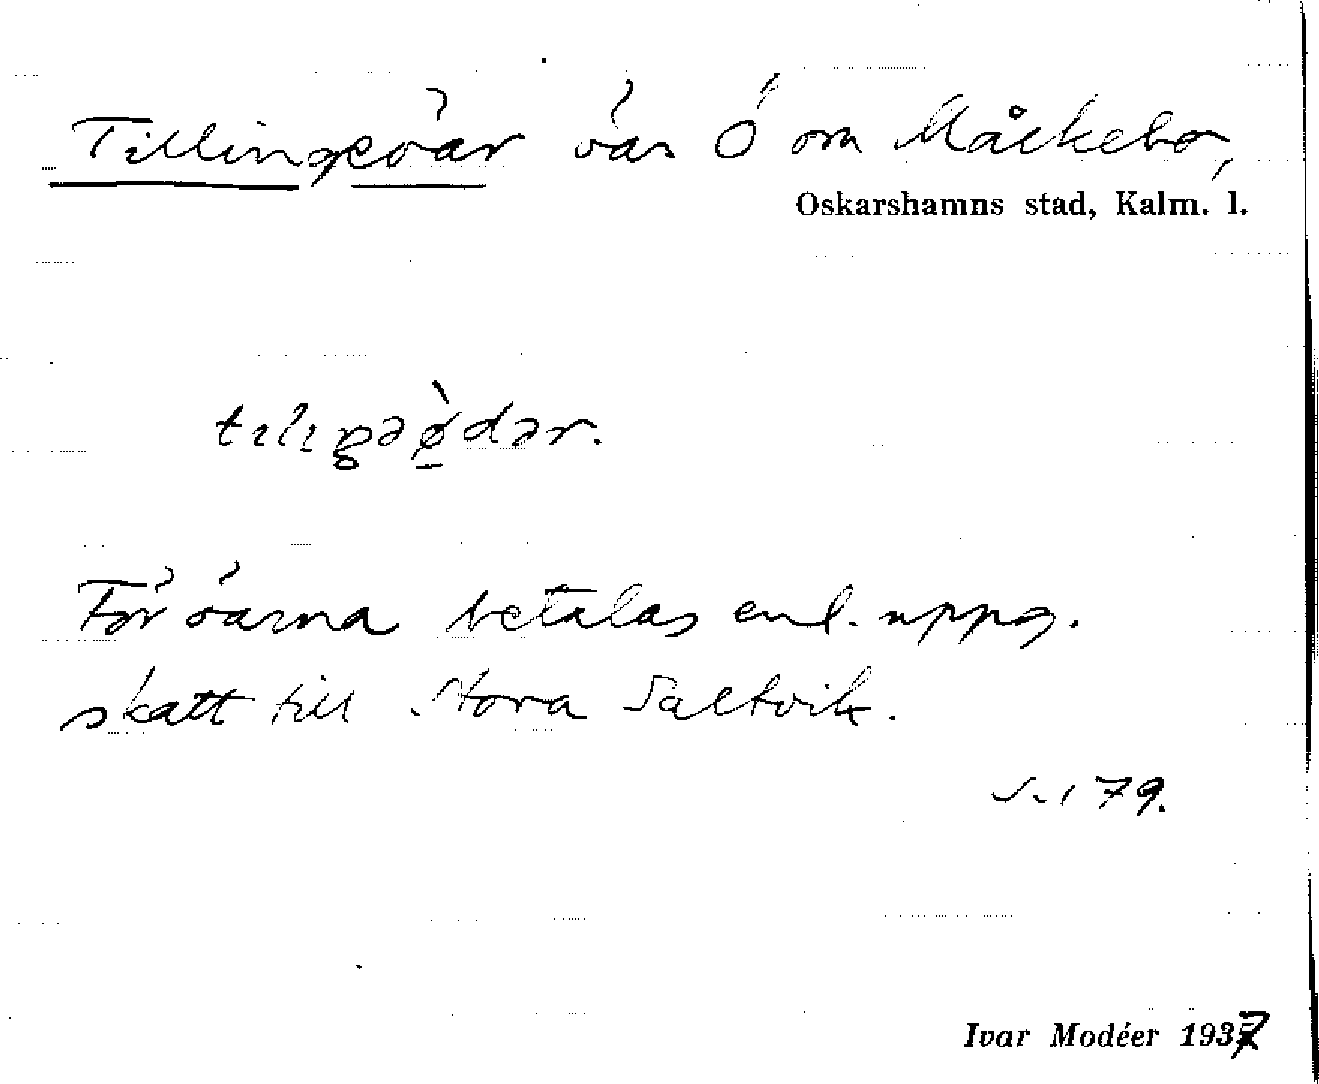 Tillingeöar öar Ö om Måckebo,
Oskarshamns stad, Kalm. l.
För öarna betalas enl. uppg.
skatt till Norra Saltvik.
179.
Ivar Modéer 1937